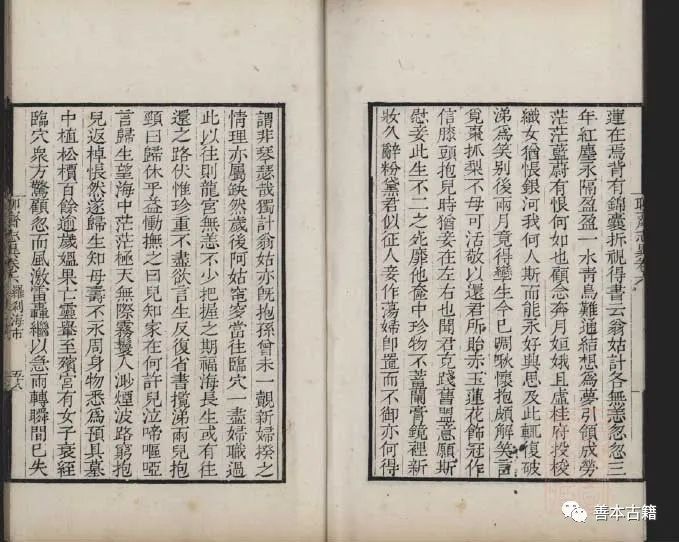 蓮在焉背有錦囊拆視得書云翁姑計各無恙忽忽三
年紅塵永隔盈盈一水青鳥難通結想爲夢引領成勞
茫茫藍蔚有恨何如也顧念奔月姮娥且虛桂府投梭
織女猶悵銀河我何人斯而能永好興思及此輒復破
涕爲笑別後兩月竟得孿生今已啁啾懷抱頗解笑言
覓棗抓梨不母可活敬以還君所貽赤玉蓮花飾冠作
信膝頭抱兒時猶妾在左右也聞君克踐舊盟意願斯
慰妾此生不二之死靡他奩中珍物不蓄蘭膏鏡裡新
妝久辭粉黛君似征人妾作蕩婦即置而不御亦何得
謂非琴瑟哉獨計翁姑亦既抱孫曾未一覿新婦揆之
情理亦屬缺然歲後阿姑窀穸當往臨穴一盡婦職過
此以往則龍宮無恙不少把握之期福海長生或有往
還之路伏惟珍重不盡欲言生反復省書攬涕兩兒抱
頸曰歸休乎益慟撫之曰兒知家在何許兒泣啼嘔啞
言歸生望海中茫茫極天無際霧鬟人渺煙波路窮抱
兒返棹悵然遂歸生知母壽不永周身物悉爲預具墓
中植松檟百餘逾歲媼果亡靈轝至殯宮有女子衰絰
臨穴衆方驚顧忽而風激雷轟繼以急雨轉瞬間已失
羅刹海市
善本古籍